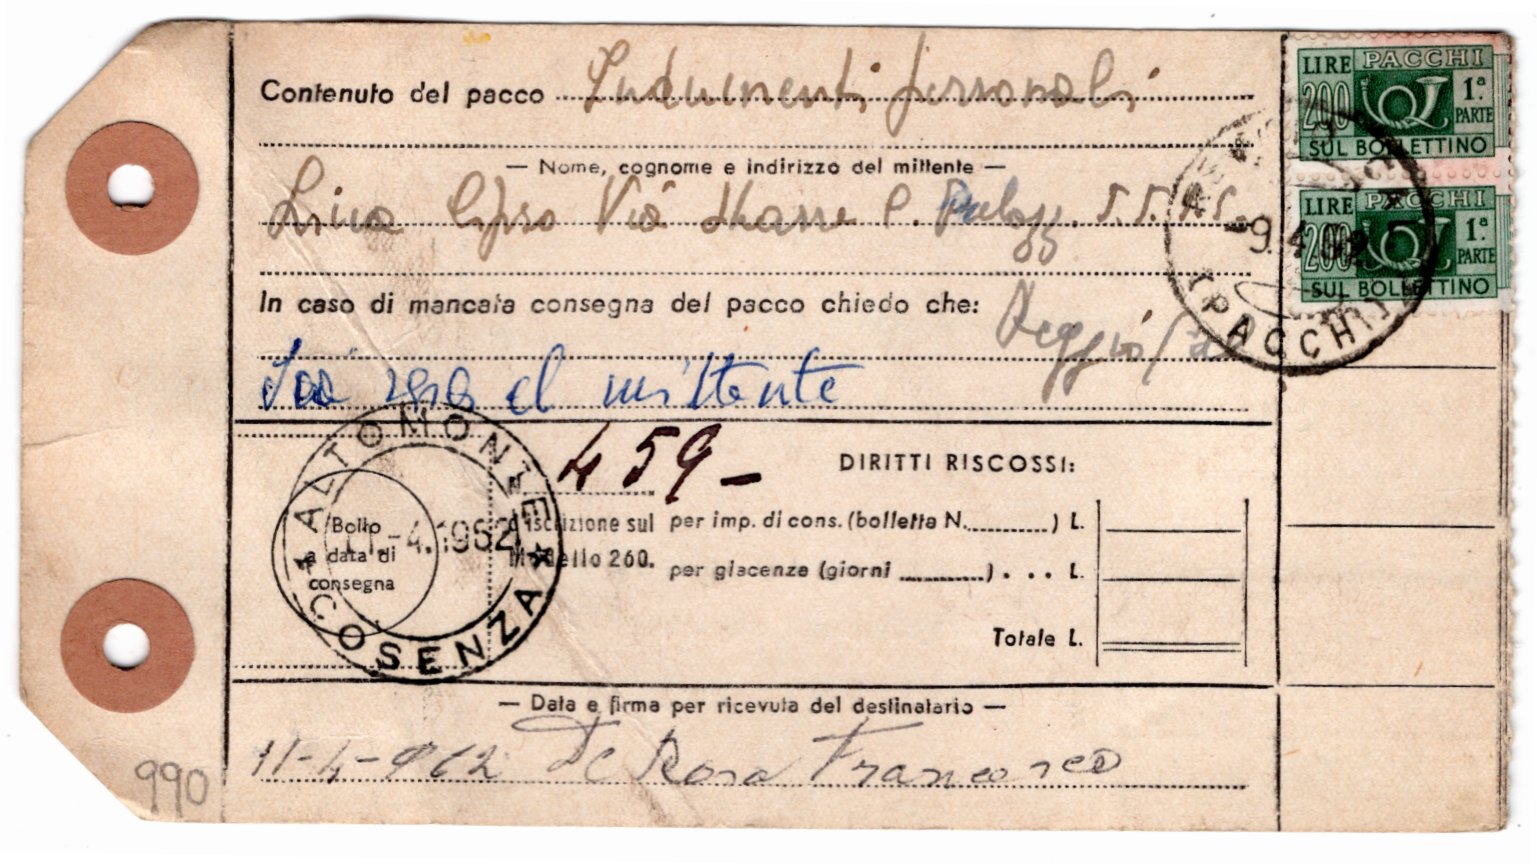 Contenuto del pacco Indumenti personali
LIRE PACCHI
200 1ª PARTE
SUL BOLLETTINO
— Nome, cognome e indirizzo del mittente —
Lina Via P. Palazz.
LIRE PACCHI
200 1ª PARTE
SUL BOLLETTINO
-9.4.62
(PACCHI)
In caso di mancata consegna del pacco chiedo che:
Reggio
Sia reso al mittente
459-
DIRITTI RISCOSSI:
ALTOMONTE
★ COSENZA ★
11-4.1962
Bollo
a data di
consegna
d'iscrizione sul
Modello 260.
per imp. di cons. (bolletta N. ) L.
per giacenza (giorni ) . . . L.
Totale L.
— Data e firma per ricevuta del destinatario —
11-4-962 De Rosa Francesco
990